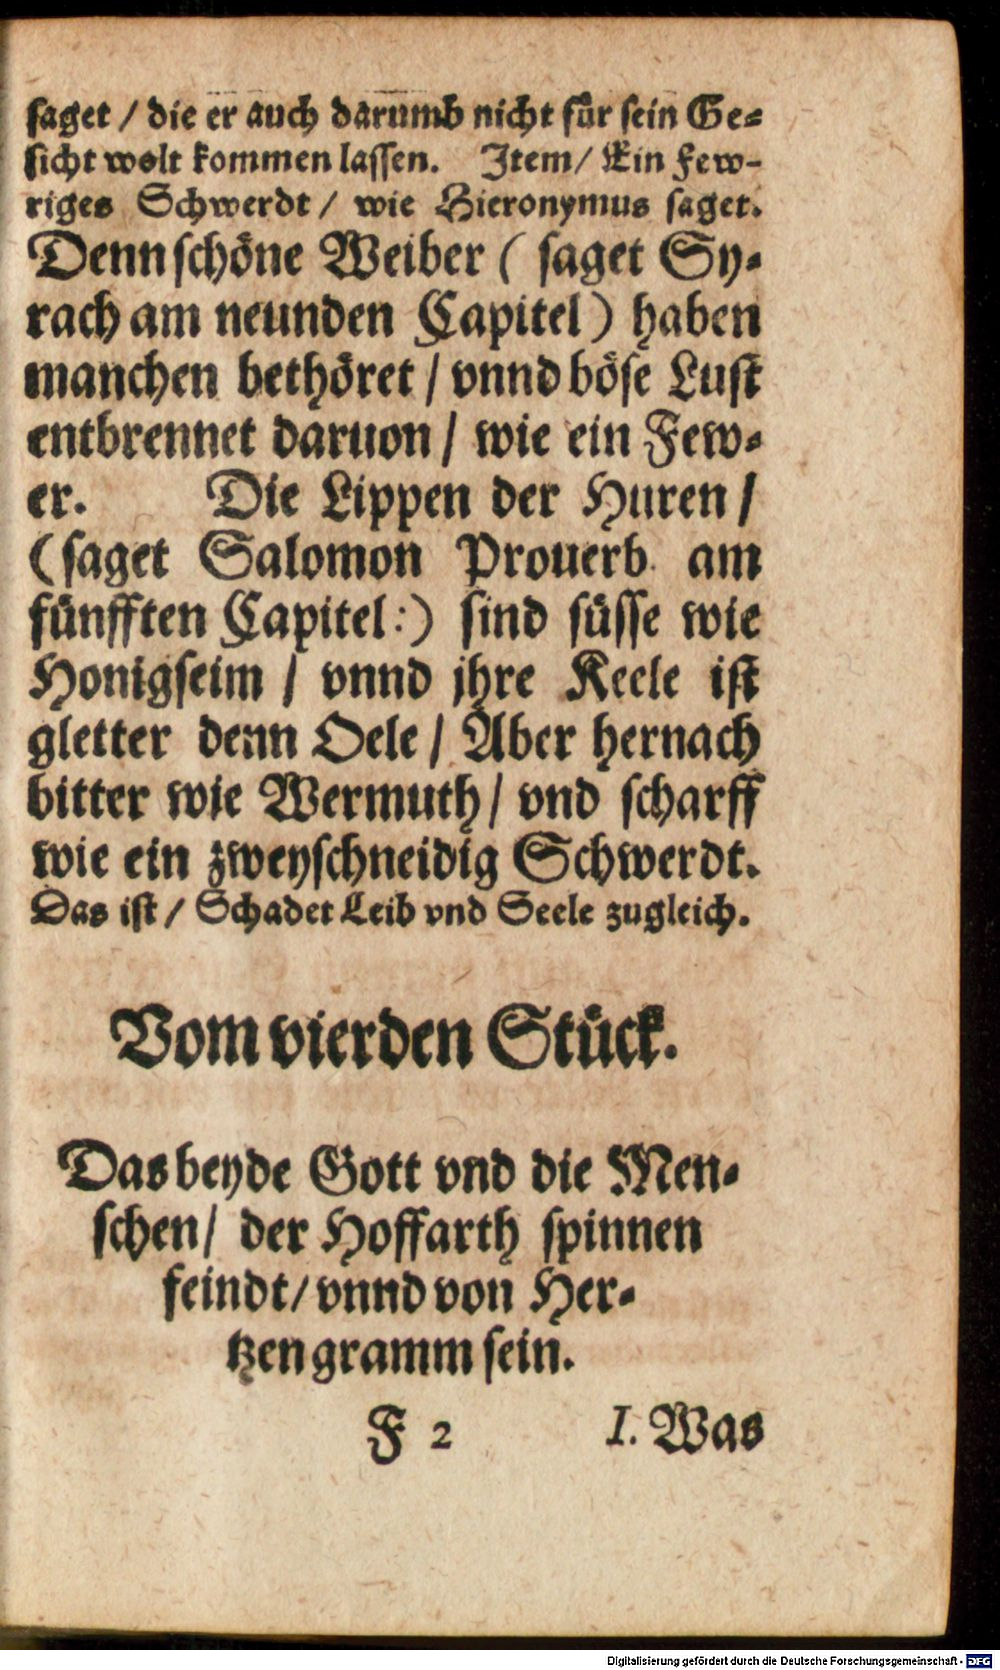 saget / die er auch darumb nicht für sein Ge-
sicht wolt kommen lassen. Item / Ein Few-
riges Schwerdt / wie Hieronymus saget.
Denn schöne Weiber ( saget Sy-
rach am neunden Capitel ) haben
manchen bethöret / vnnd böse Lust
entbrennet daruon / wie ein Few-
er. Die Lippen der Huren /
( saget Salomon Prouerb. am
fünfften Capitel: ) sind süsse wie
Honigseim / vnnd jhre Keele ist
gletter denn Oele / Aber hernach
bitter wie Wermuth / vnd scharff
wie ein zweyschneidig Schwerdt.
Das ist / Schadet Leib vnd Seele zugleich.
Vom vierden Stück.
Das beyde Gott vnd die Men-
schen / der Hoffarth spinnen
feindt / vnnd von Her-
tzen gramm sein.
F 2 I. Was
Digitalisierung gefördert durch die Deutsche Forschungsgemeinschaft - DFG